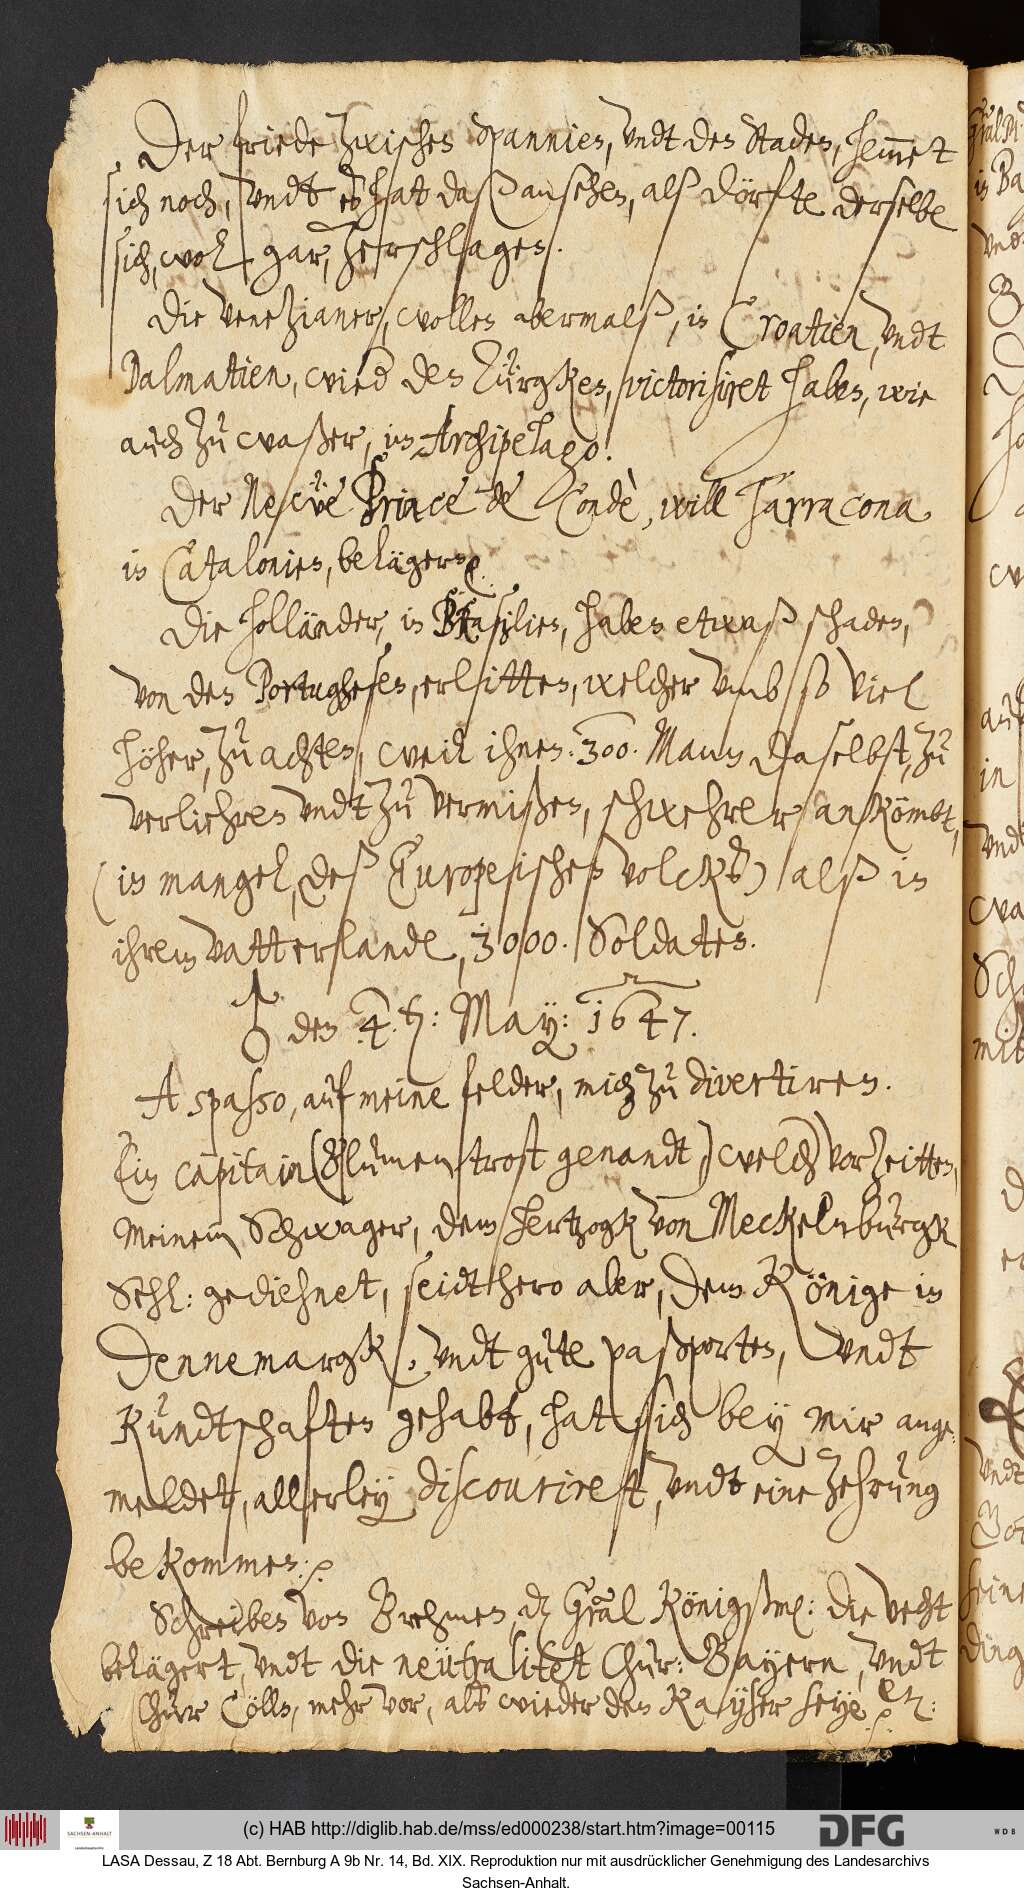 Der friede zwischen Spannien, vndt den Staden, hemmet
sich noch, vndt es hat daß ansehen, alß dörfte derselbe
sich, wol gar, zerschlagen.
Die Venezianer, wollen abermalß, in Croatien, vndt
Dalmatien, wied den Türgken, victorisiret haben, wie
auch zu waßer, im Archipelago.
Der Newe Prince de Condè, will Tarracona
in Catalonien, belägern.
Die Holländer, in Brasilien, haben etwaß schaden,
von den Portughesen, erlitten, welcher vmb so viel
höher, zu achten, weil ihnen .300. Mann daselbst, zu
verliehren vndt zu vermißen, schwehrer ankömbt,
(in mangel, deß Europeischen volcks) alß in
ihrem vatterlande, 3000. Soldaten.
♂ den .4. ten: May: 1647.
A spasso, auf meine felder, mich zu divertiren.
Ein capitain (Blumentrost genandt,) welch vor zeitten,
meinem Schwager, dem Hertzogk von Meckelnburgk
Sehl: gediehnet, seidthero aber, dem Könige in
Dennemargk, vndt gute paßporten, vndt
Kundtschaften gehabt, hat sich bey mir ange-
meldet, allerley discourirest, vndt eine zehrung
bekommen.
Schreiben von Brehmen, dz Gräl Königßmarck: die vecht
belägert, vndt die neutralitet Chur: Bayern, vndt
Chur Cölln, mehr vor, als wieder den Kayser seye etc:
(c) HAB http://diglib.hab.de/mss/ed000238/start.htm?image=00115
SACHSEN-ANHALT
DFG
W D B
LASA Dessau, Z 18 Abt. Bernburg A 9b Nr. 14, Bd. XIX. Reproduktion nur mit ausdrücklicher Genehmigung des Landesarchivs
Sachsen-Anhalt.